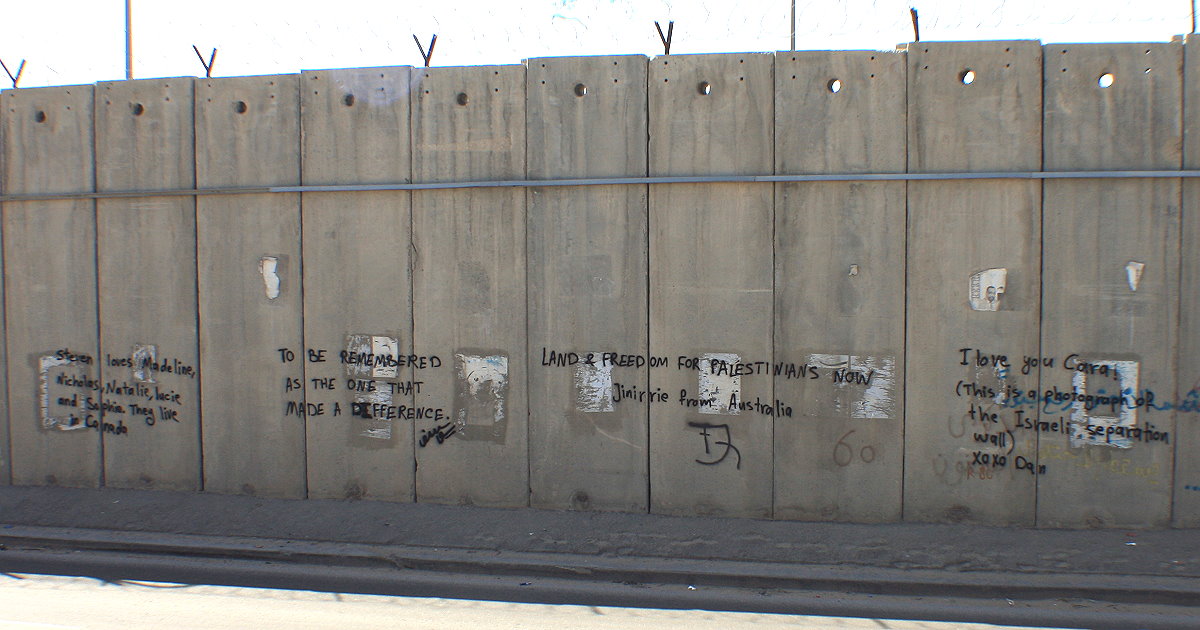 Steven loves Madeline,
Nicholas, Natalie, lucie
and Sophia. They live
in Canada
TO BE REMEMBERED
AS THE ONE THAT
MADE A DIFFERENCE.
LAND & FREEDOM FOR PALESTINIANS NOW
Jinirrie from Australia
60
I love you Cara!
(This is a photograph of
the Israeli separation
wall)
xoxo Dan